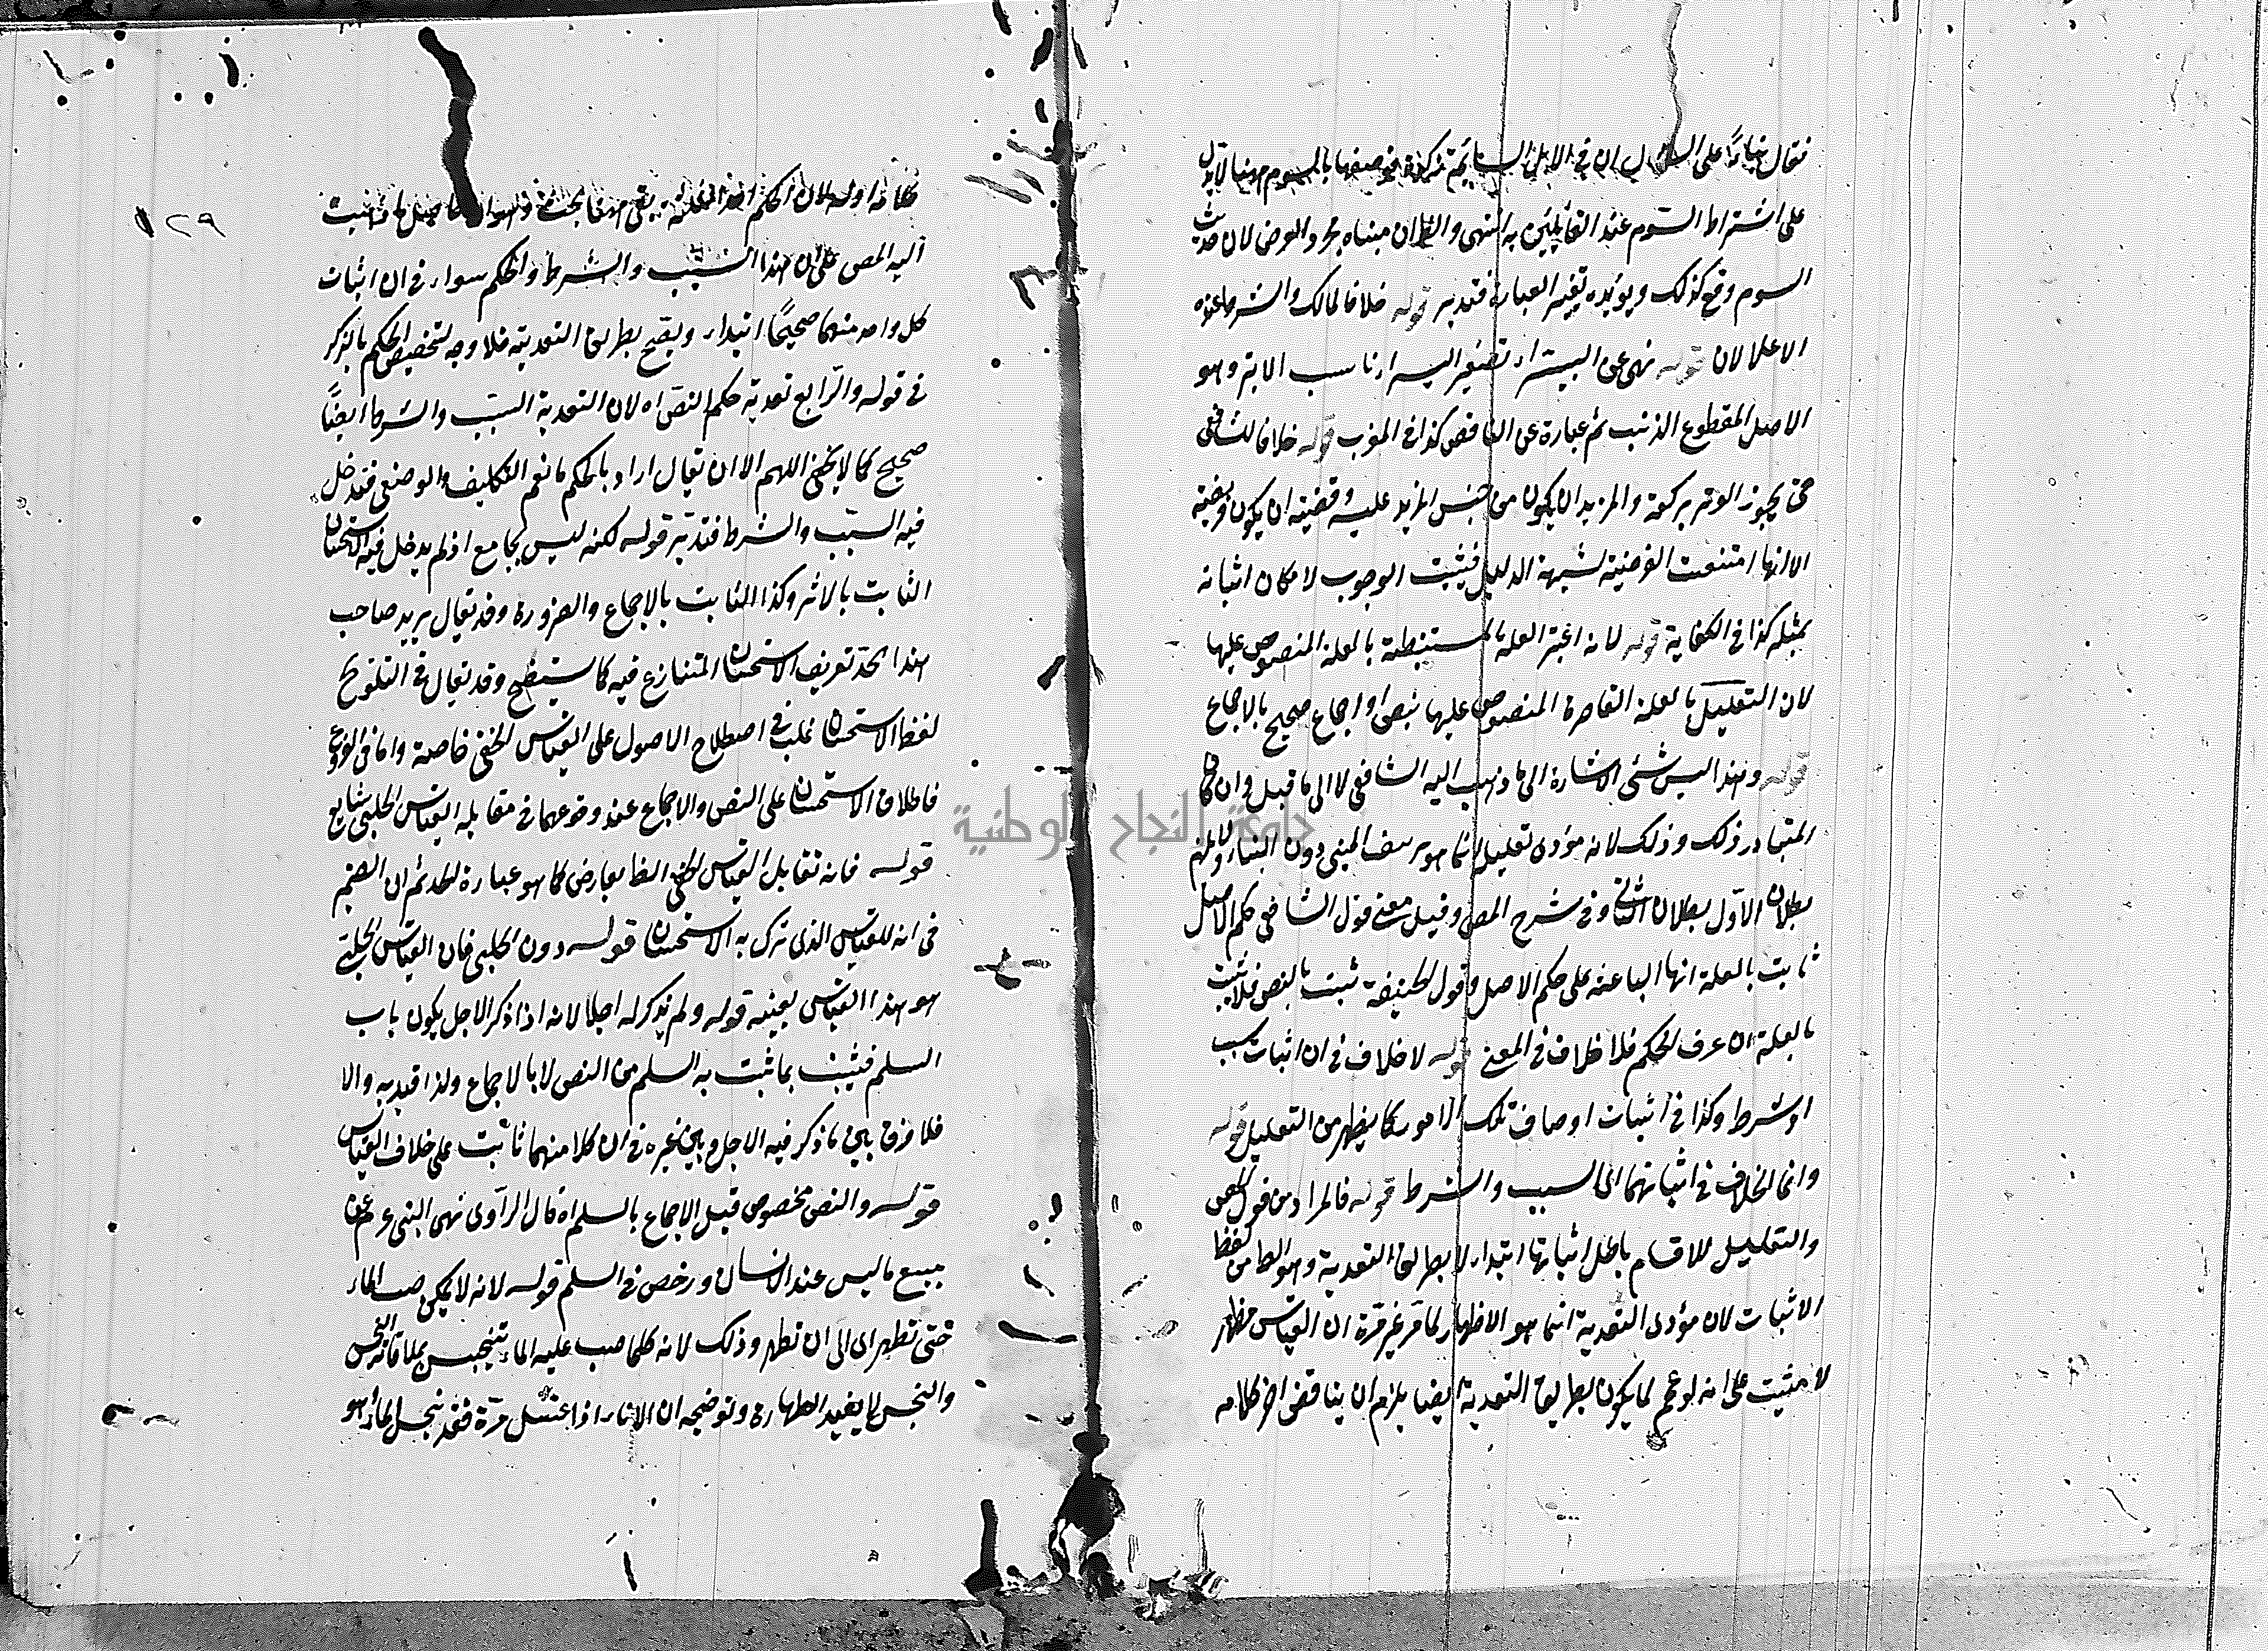 فقال بناء على السؤال ان في الابل السائمة زكوة فوصفها بالسوم هنا لا يدل
على اشتراط السوم عند القائلين به انتهى والظ ان مبناه مجرد الفرض لان حديث
السوم وقع كذلك ويؤيده تغيير العبارة فتدبر قوله خلافا لمالك والشرط عنده
الاعلان قوله نهى عن البتيراء تصغير البتراء تانيث الابتر وهو
الاصل المقطوع الذنب ثم عبارة عن الناقص كذا في المغرب قوله خلافا للشافعي
حتى يجوز الوتر بركعة والمزيد ان يكون من جنس المزيد عليه وقضيته ان يكون فريضة
الا انها امتنعت الفرضية لشبهة الدليل فيثبت الوجوب لامكان اثباته
بمثله كذا في الكفاية قوله لانه اعتبر العلة المستنبطة بالعلة المنصوص عليها
لان التعليل بالعلة القاصرة المنصوص عليها بنص او اجماع صحيح بالاجماع
قوله وهذا ليس بشئ الاشارة الى ما ذهب اليه الشافعي لا الى ما قبل وان كان
المتبادر ذلك وذلك لانه مؤدى تعليله انما هو المبنى دون البناء ولا يلزم
بطلان الاول بطلان الثاني وفي شرح المص وقيل معنى قول الشافعي حكم الاصل
ثابت بالعلة انها الباعثة على حكم الاصل وقول الحنيفة ثبت بالنص فلا يثبت
بالعلة ان عرف الحكم فلا خلاف في المعنى قوله لا خلاف في ان اثبات سبب
او شرط وكذا في اثبات اوصاف تلك الامور كما يظهر من التعليل قوله
وانما الخلاف في اثباتهما اى السبب والشرط قوله فالمراد من قول المص
والتعليل للاقسام باطل اثباتها ابتداء لا بطريق التعدية وهو الظ من لفظ
الاثبات لان مؤدى التعدية انما هو الاظهار لما مر غير مرة ان القياس مظهر
لا مثبت على انه لو عمم لما يكون بطريق التعدية ايضا يلزم ان يناقض اخر كلامه
١٢٩
كلامه اوله لان الحكم
اليه المص على ان هذا السبب والشرط والحكم سواء في ان اثبات
كل واحد منهما صحيحا ابتداء ويصح بطريق التعدية فلا وجه لتخصيص الحكم بالذكر
في قوله والرابع تعدية حكم النص اه لان التعدية السبب والشرط ايضا
صحيح كما لا يخفى اللهم الا ان يقال اراد بالحكم ما يعم التكليف والوضعي فتدخل
فيه السبب والشرط فتدبر قوله لكنه ليس بجامع اذ لم يدخل فيه الاستحسان
الثابت بالاثر وكذا الثابت بالاجماع والضرورة وقد يقال يريد صاحب
هذا الحد تعريف الاستحسان المتنازع فيه كما سيتضح وقد يقال في التلويح
لفظ الاستحسان غلب في اصطلاح الاصول على القياس الخفي خاصة واما في الفروع
فاطلاق الاستحسان على النص والاجماع عند وقوعهما في مقابلة القياس الجلي شايع
قوله فانه تقابل القياس الخفي الظ يعارض كما هو عبارة الحد ثم ان الضمير
في انه للقياس الذي ترك به الاستحسان قوله دون الجلي فان القياس الجلي
هو هذا القياس بعينه قوله ولم يذكر له اجلا لانه اذا ذكر الاجل يكون باب
السلم فيثبت بما ثبت به السلم من النص لا بالاجماع ولذا قيد به والا
فلا فرق بين ما ذكر فيه الاجل وبين غيره في ان كلا منهما ثابت على خلاف القياس
قوله والنص مخصوص قبل الاجماع بالسلم اه قال الراوى نهى النبي عم عن
بيع ما ليس عند الانسان ورخص في السلم قوله لانه لا يمكن صب الماء
حتى تطهر اى الى ان تطهر وذلك لانه كلما صب عليه الماء يتنجس بملاقاته النجس
والنجس لا يفيد الطهارة وتوضيحه ان الاناء اذا غسل مرة فقد نجس الماء هو
جامعة النجاح الوطنية